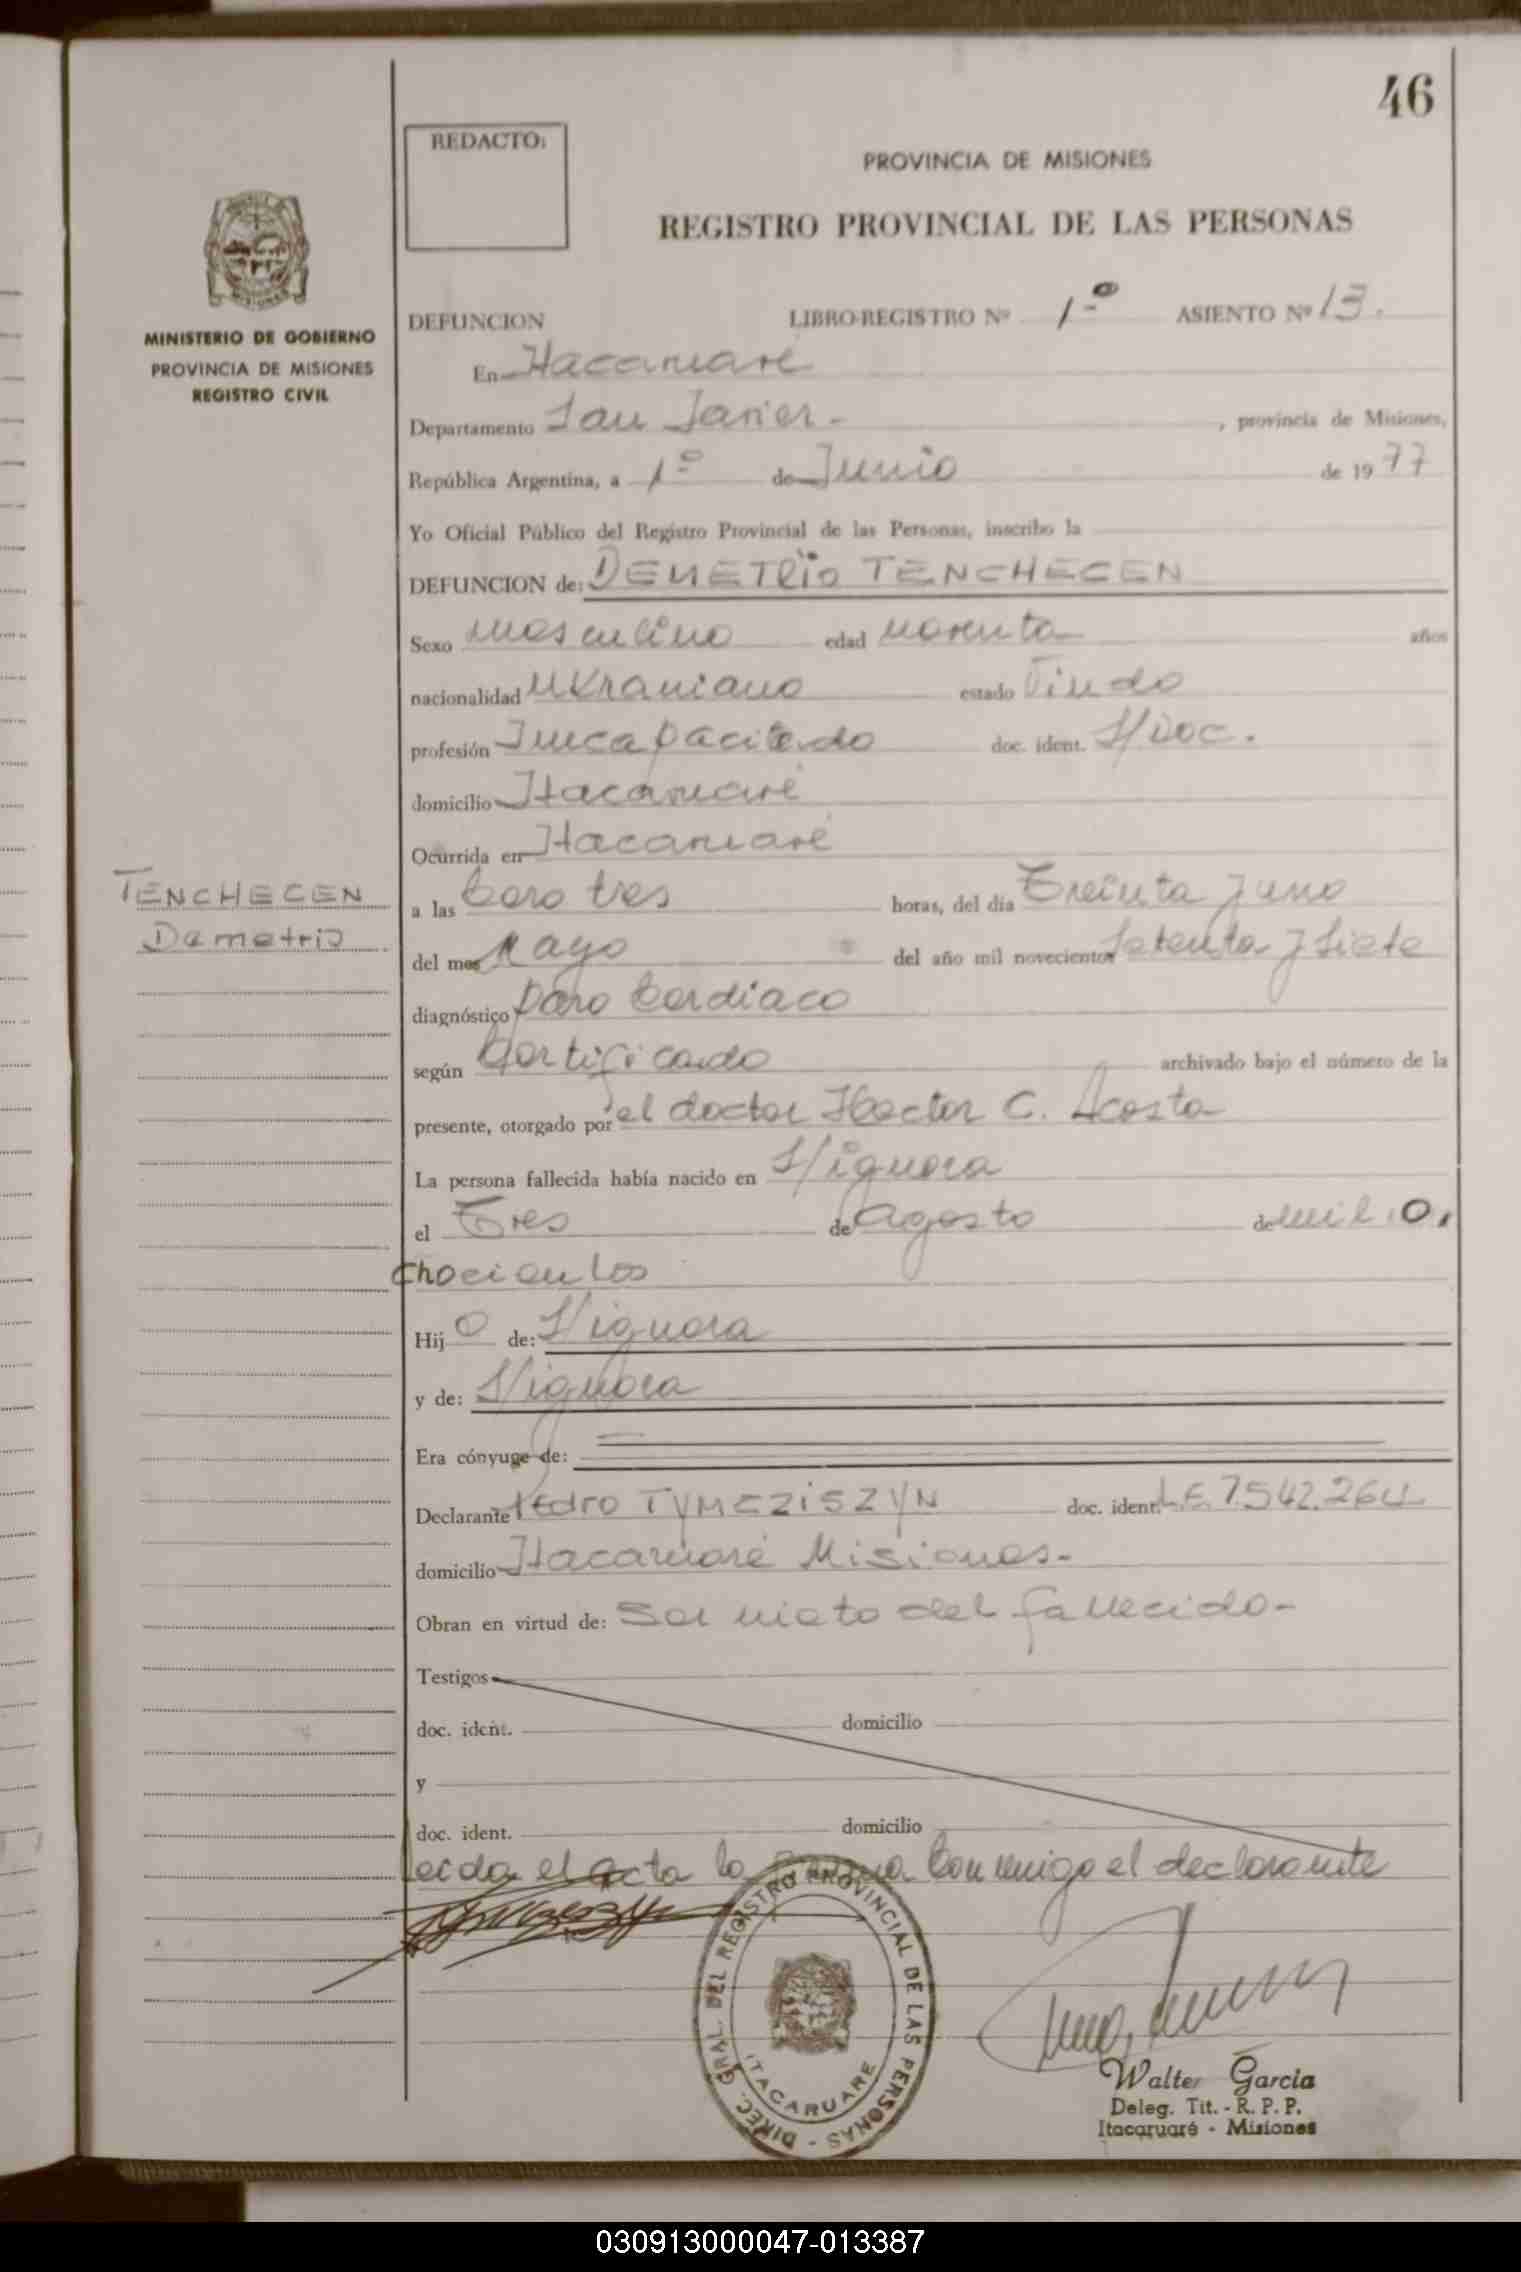 46
REDACTO:
PROVINCIA DE MISIONES
REGISTRO PROVINCIAL DE LAS PERSONAS
MINISTERIO DE GOBIERNO
PROVINCIA DE MISIONES
REGISTRO CIVIL
DEFUNCION LIBRO-REGISTRO Nº 1º ASIENTO Nº 13.
En Itacaruaré
Departamento San Javier - , provincia de Misiones,
República Argentina, a 1º de Junio de 1977
Yo Oficial Público del Registro Provincial de las Personas, inscribo la
DEFUNCION de: DEMETRIO TENCHECEN
Sexo Masculino edad noventa años
nacionalidad Ukraniano estado Viudo
profesión Incapacitado doc. ident. S/Doc.
domicilio Itacaruaré
Ocurrida en Itacaruaré
TENCHECEN
Demetrio
a las Cero tres horas, del día Treinta y uno
del mes Mayo del año mil novecientos Setenta y Siete
diagnóstico Paro Cardiaco
según Certificado archivado bajo el número de la
presente, otorgado por el doctor Hector C. Acosta
La persona fallecida había nacido en S/ignora
el Tres de Agosto de mil O.
chocientos
Hij o de: S/ignora
y de: S/ignora
Era cónyuge de:
Declarante Pedro TYMEZISZYN doc. ident. L.E. 7.542.264
domicilio Itacaruaré Misiones.-
Obran en virtud de: Ser nieto del fallecido-
Testigos
doc. ident. domicilio
y
doc. ident. domicilio
Leida el acta la Conmigo el declarante
DIREC. GRAL. DEL REGISTRO PROVINCIAL DE LAS PERSONAS -
ITACARUARE
Walter Garcia
Deleg. Tit. - R. P. P.
Itacaruaré - Misiones
030913000047-013387